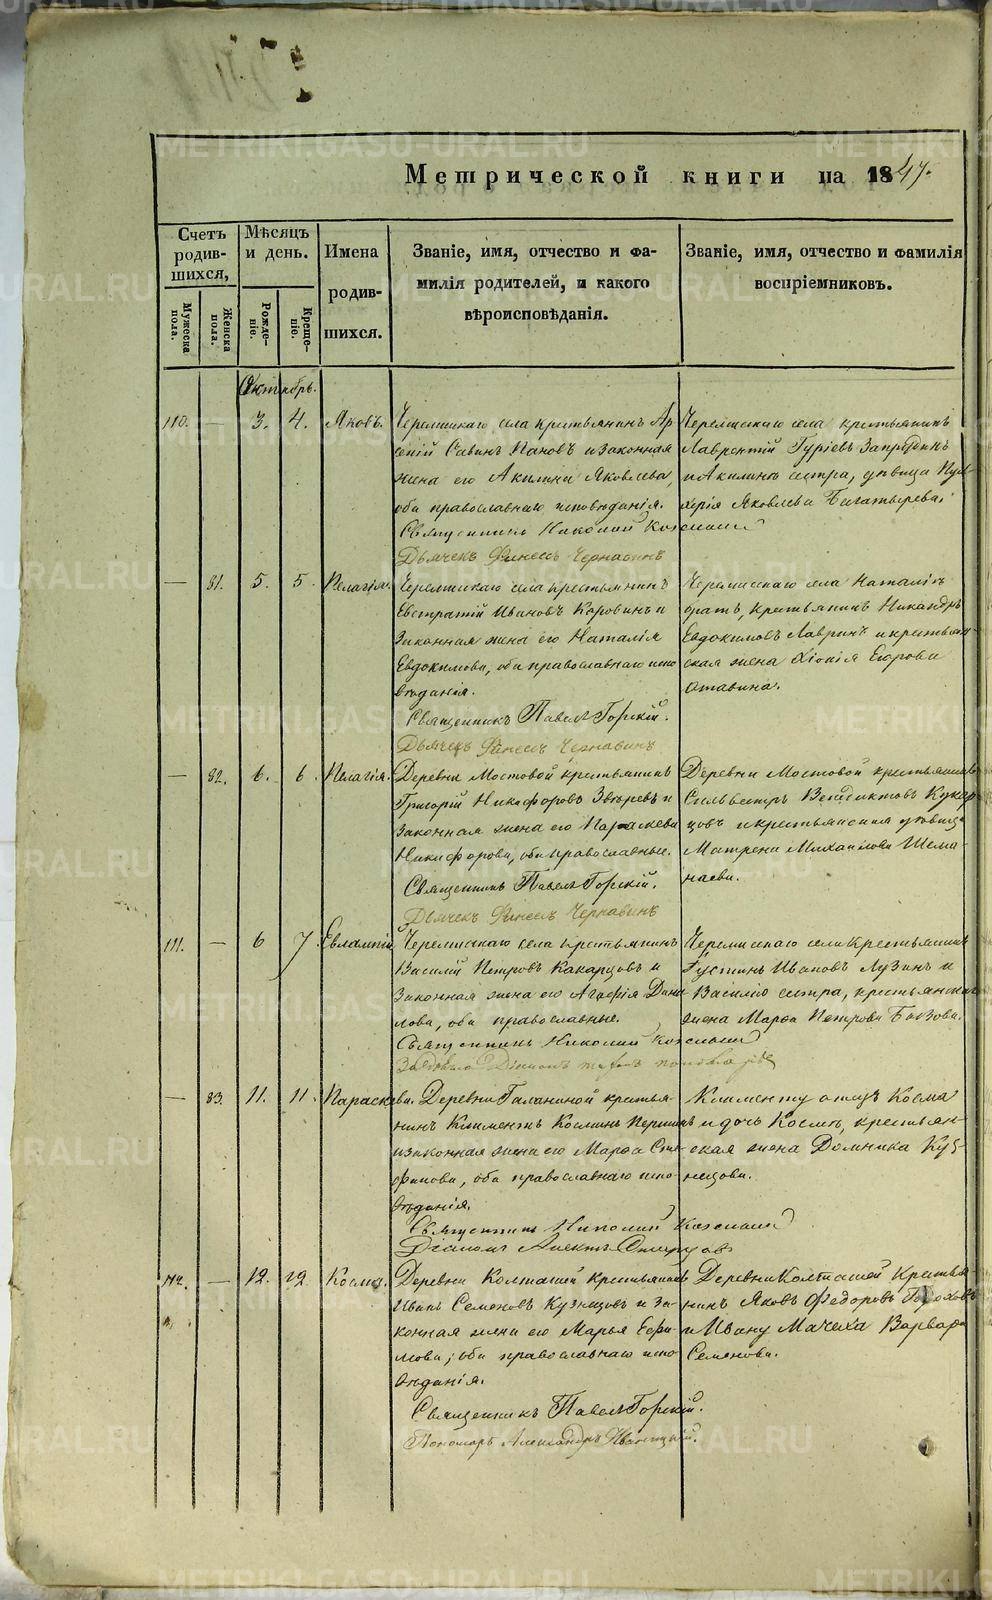 Метрической книги на 1847.
Счетъ родив-
шихся,
Мужеска пола.
Женска пола.
Мѣсяцъ и день.
Рожде-
ніе.
Креще-
ніе.
Имена
родив-
шихся.
Званіе, имя, отчество и фа-
милія родителей, и какого
вѣроисповѣданія.
Званіе, имя, отчество и фамилія
воспріемниковъ.
Октябрь.
110. — 3. 4. Яковъ.
Черемискаго села крестьянинъ Ар-
сеній Савинъ Пановъ и законная
жена его Акилина Яковлева,
оба православнаго исповѣданія.
Священникъ Николай
Дьячекъ Чернавинъ
Черемискаго села крестьянинъ
Лаврентій Гуріевъ Запрудинъ
и Акилинѣ сестра, дѣвица Пул-
херія Яковлева Багатырева.
— 81. 5. 5. Пелагія.
Черемискаго села крестьянинъ
Евстратій Ивановъ Коровинъ и
законная жена его Наталія
Евдокимова, оба православнаго испо-
вѣданія.
Священникъ Павелъ Горскій.
Дьячекъ Чернавинъ
Черемискаго села Наталіи
братъ, крестьянинъ Никандръ
Евдокимовъ Лавринъ и крестьян-
ская жена Хіонія Егорова
Отавина.
— 82. 6. 6. Пелагія.
Деревни Мостовой крестьянинъ
Григорій Никифоровъ Звѣревъ и
законная жена его Параскева
Никифорова, оба православные.
Священникъ Павелъ Горскій.
Дьячекъ Чернавинъ
Деревни Мостовой крестьянинъ
Сильвестръ Венедиктовъ Кукар-
цовъ и крестьянская дѣвица
Матрена Михаилова Шема-
наева.
111. — 6 7. Евлампій.
Черемискаго села крестьянинъ
Василій Петровъ Какарцовъ и
законная жена его Агафія Дани-
лова, оба православные.
Священникъ Николай
Черемискаго села крестьянинъ
Густинъ Ивановъ Лузинъ и
Василію сестра, крестьянская
жена Марфа Петрова Бызова.
— 83. 11. 11. Параскева.
Деревни Галаниной крестья-
нинъ Климентъ Косминъ Першинъ
и законная жена его Марфа Сте-
фанова, оба православнаго испо-
вѣданія.
Священникъ Николай
Діаконъ
Клименту отецъ Косма
и дочь Космы, крестьян-
ская жена Домника Куз-
нецова.
112. — 12. 12. Косма.
Деревни Колташей крестьянинъ
Иванъ Семеновъ Кузнецовъ и за-
конная жена его Марья Ефи-
мова; оба православнаго испо-
вѣданія.
Священникъ Павелъ Горскій.
Пономарь Александръ Иваницкій.
Деревни Колташей крестья-
нинъ Яковъ Федоровъ Гороховъ
и Ивану Мачеха Варвара
Семенова.
METRIKI.GASO-URAL.RU